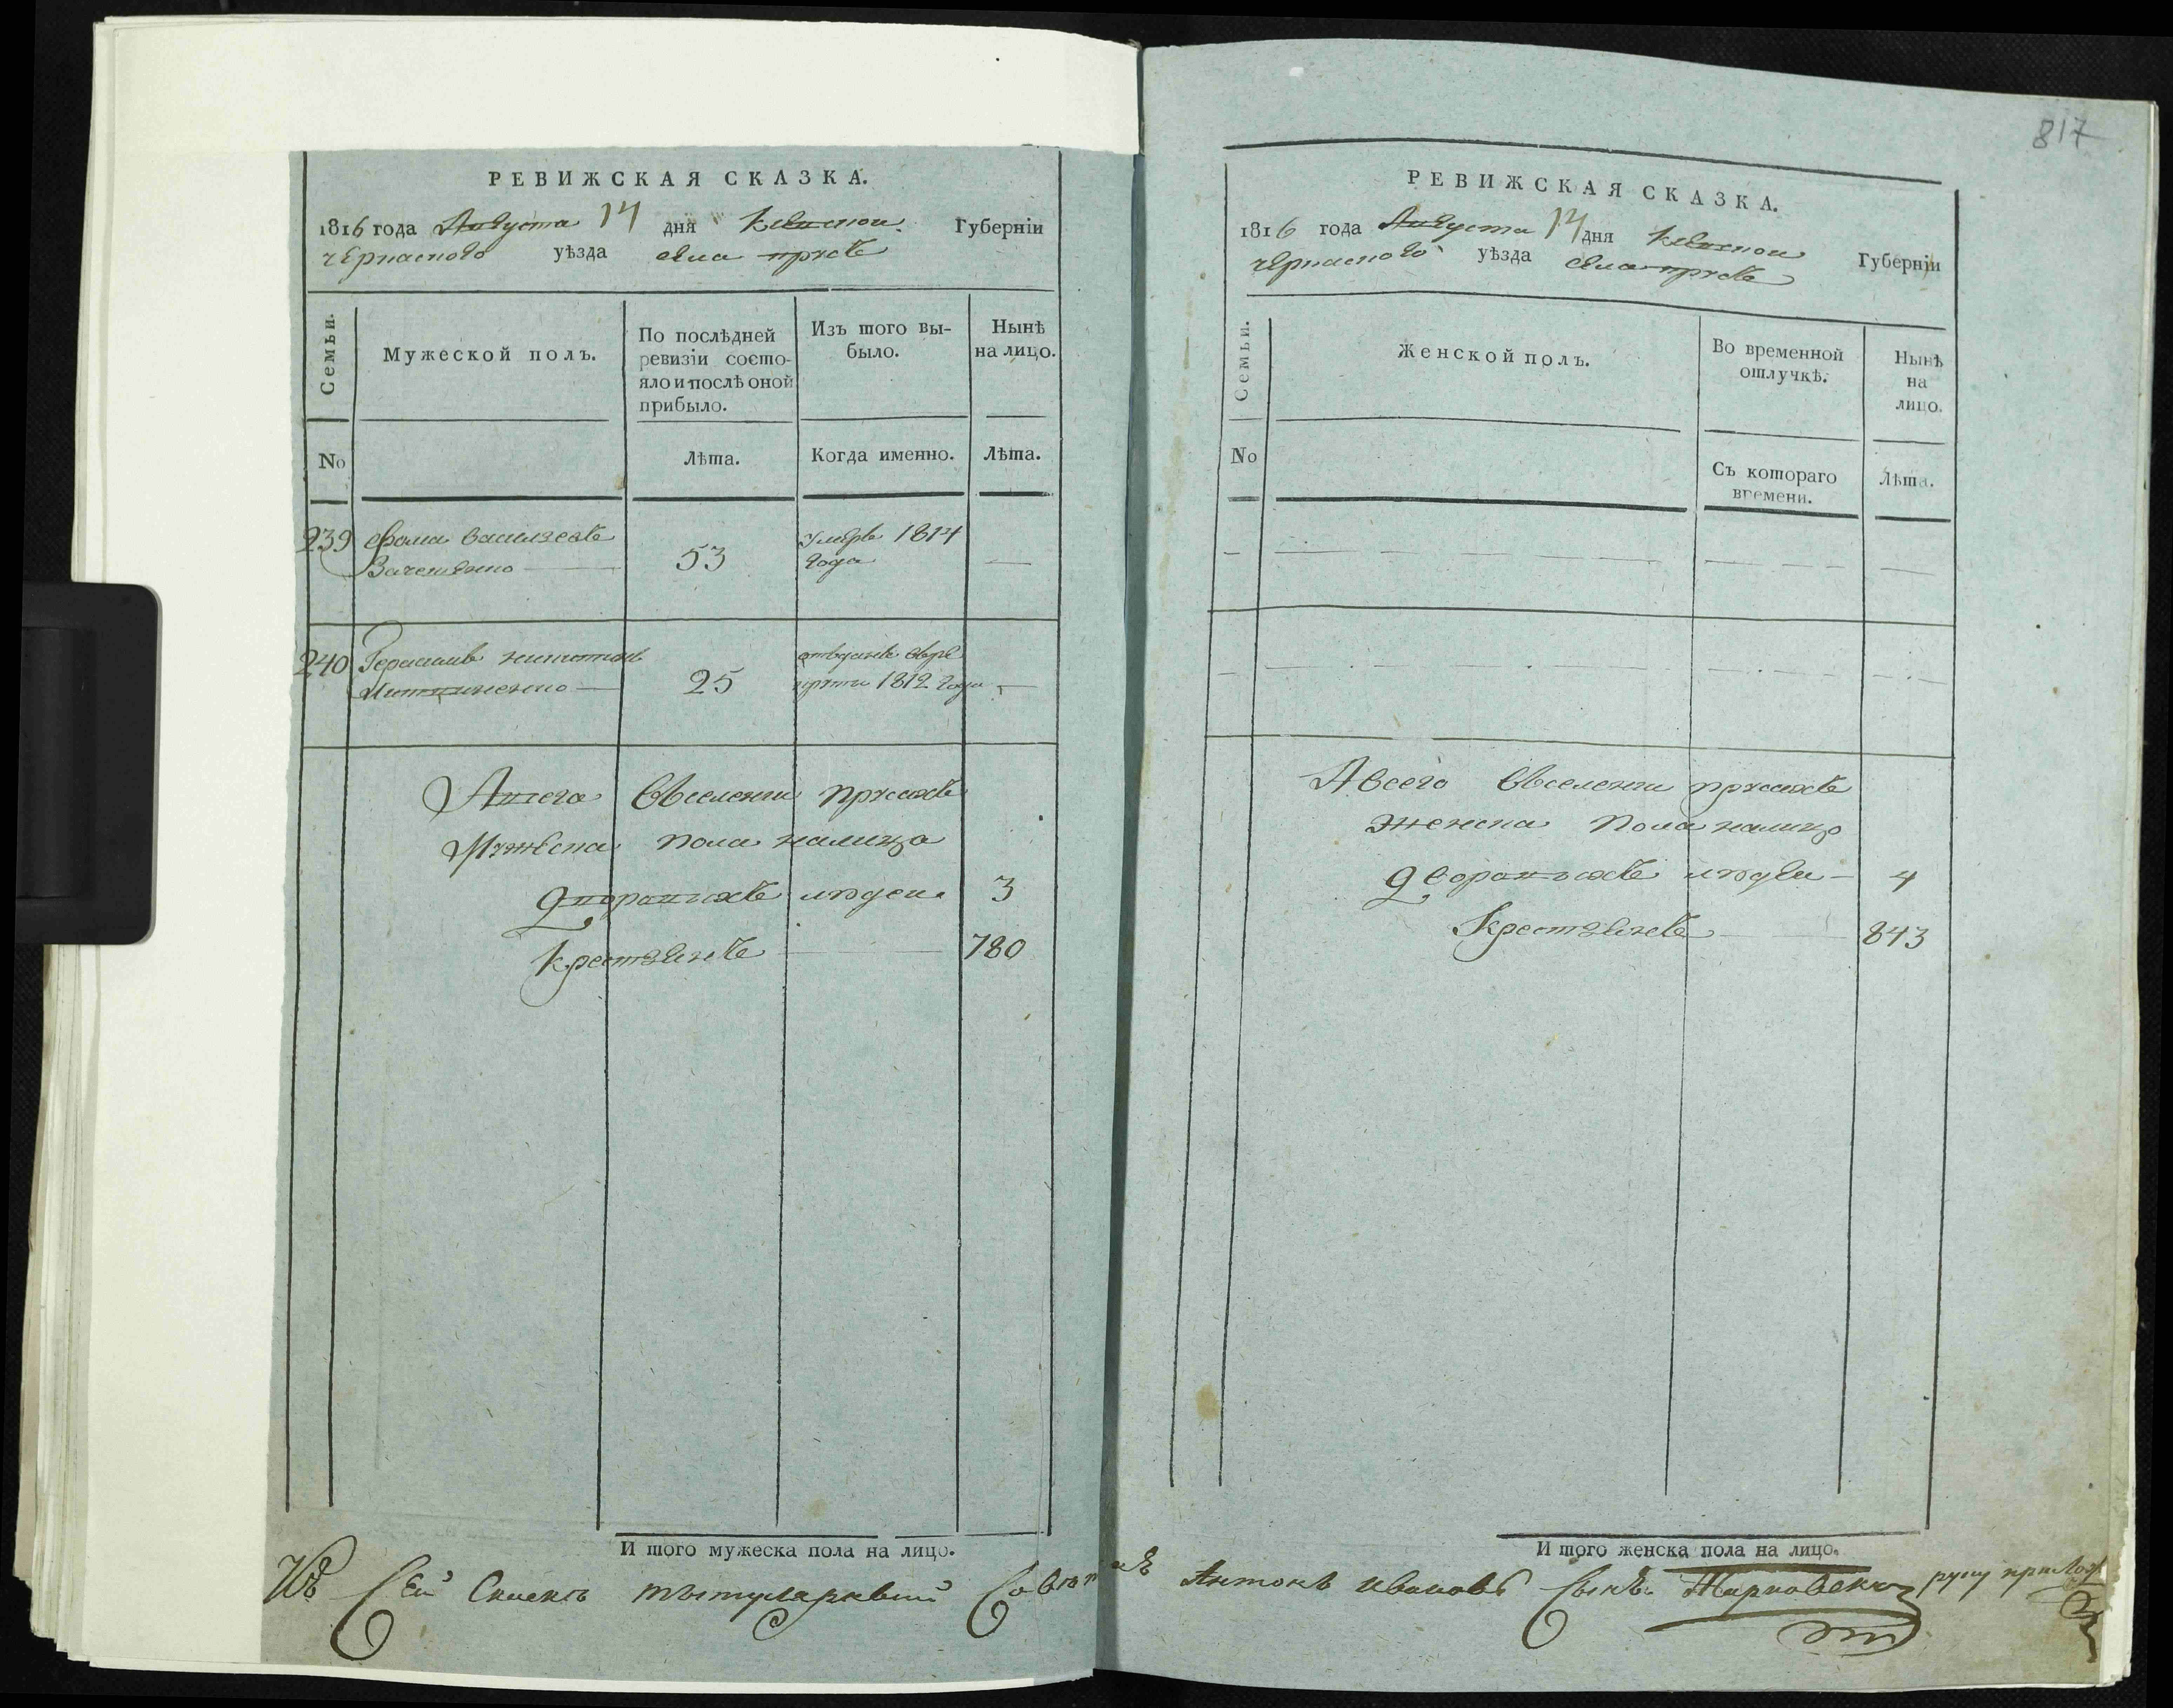 РЕВИЖСКАЯ СКАЗКА.
1816 года Августа 14 дня Киевской Губерніи
черкаского уѣзда села прусъ
Семьи.
Мужеской полъ.
По послѣдней
ревизіи состо-
яло и послѣ оной
прибыло.
Изъ того вы-
было.
Нынѣ
на лицо.
No
Лѣта.
Когда именно.
Лѣта.
239 Фома васильевъ
53
умеръ 1814
года
240 Герасимъ никитинъ
25
отданъ врек
руты 1812 года
Авсего Вселении прусахъ
Мужеска пола налицо
Дворовыхъ людей 3
Крестьянъ 780
И того мужеска пола на лицо.
817
РЕВИЖСКАЯ СКАЗКА.
1816 года Августа 14 дня Киевской Губерніи
черкаского уѣзда села прусъ
Семьи.
Женской полъ.
Во временной
отлучкѣ.
Нынѣ
на
лицо.
No
Съ котораго
времени.
Лѣта.
Авсего Вселении прусахъ
женска пола налицо
Дворовыхъ людей 4
Крестьянъ 843
И того женска пола на лицо.
Къ Сей Скаске титулярный Советникъ Антонъ ивановъ Сынъ руку приложил